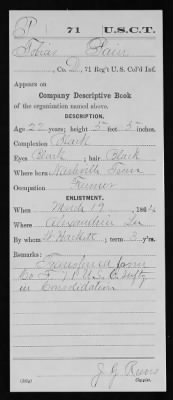 P 71 U.S.C.T.
Tobias Pain
, Co. D, 71 Reg't U. S. Col'd Inf.
Appears on
Company Descriptive Book
of the organization named above.
DESCRIPTION.
Age 22 years; height 5 feet 5 inches.
Complexion Black
Eyes Black; hair Black
Where born Nashville Tenn
Occupation Farmer
ENLISTMENT.
When March 19, 1864
Where Alexandria La
By whom Hackett; term 3 y'rs.
Remarks:
Transferred from
Co F 71 U.S.C. Infty
in Consolidation
J. G. 
Copyist.